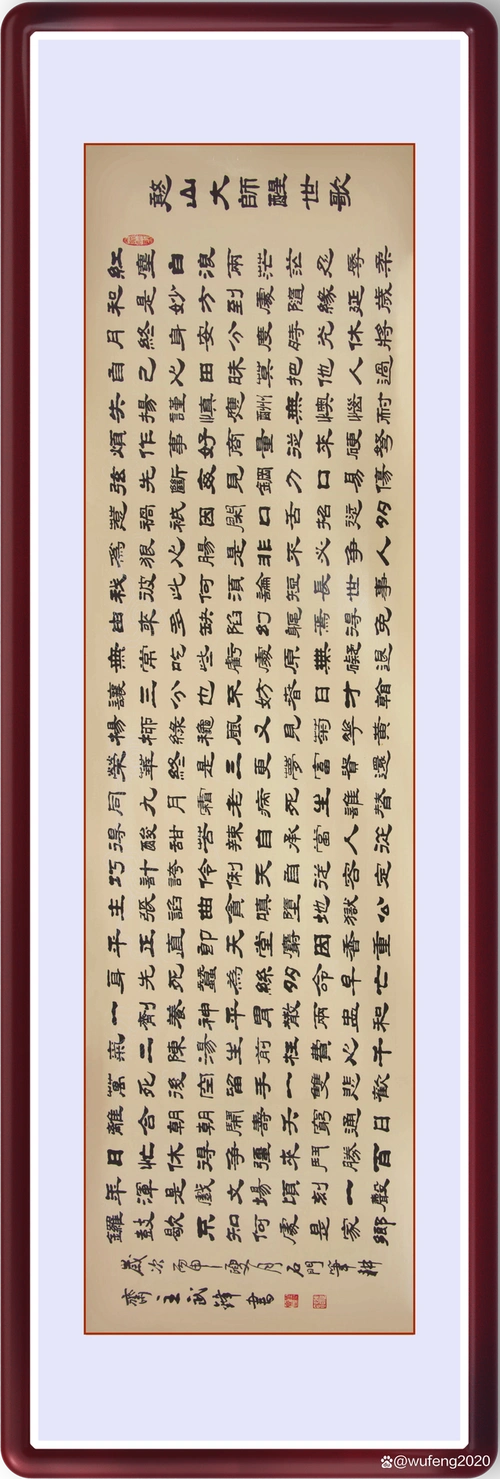 憨山大師醒世歌
紅塵白浪兩茫茫忍辱柔
和是妙方到處隨緣延歲
月終身安分度時光休將
自己心田昧莫把他人過
失揚謹慎應酬無懊惱耐
煩作事好商量從來硬弩
弦先斷每見鋼刀口易傷
惹禍祇因閑口舌招愆多
為狠心腸是非不必爭人
我彼此何須論短長世事
由來多缺陷幻軀焉得免
無常吃些虧處原無礙退
讓三分也不妨春日才看
楊柳綠穐風又見菊華黃
榮華終是三更夢富貴還
同九月霜老病死生誰替
得酸甜苦辣自承當人從
巧計誇伶俐天自從容定
主張諂曲貪嗔墮地獄公
平正直即天堂麝因香重
身先死蠶為絲多命早亡
一劑養神平胃散兩盅和
氣二陳湯生前枉費心千
萬死後空留手一雙悲歡
離合朝朝鬧壽夭窮通日
日忙休得爭彊來鬥勝百
年渾是戲文場頃刻一聲
鑼鼓歇不知何處是家鄉
歲次丙申月石門筆耕
齋王武鋒書
@wufeng2020